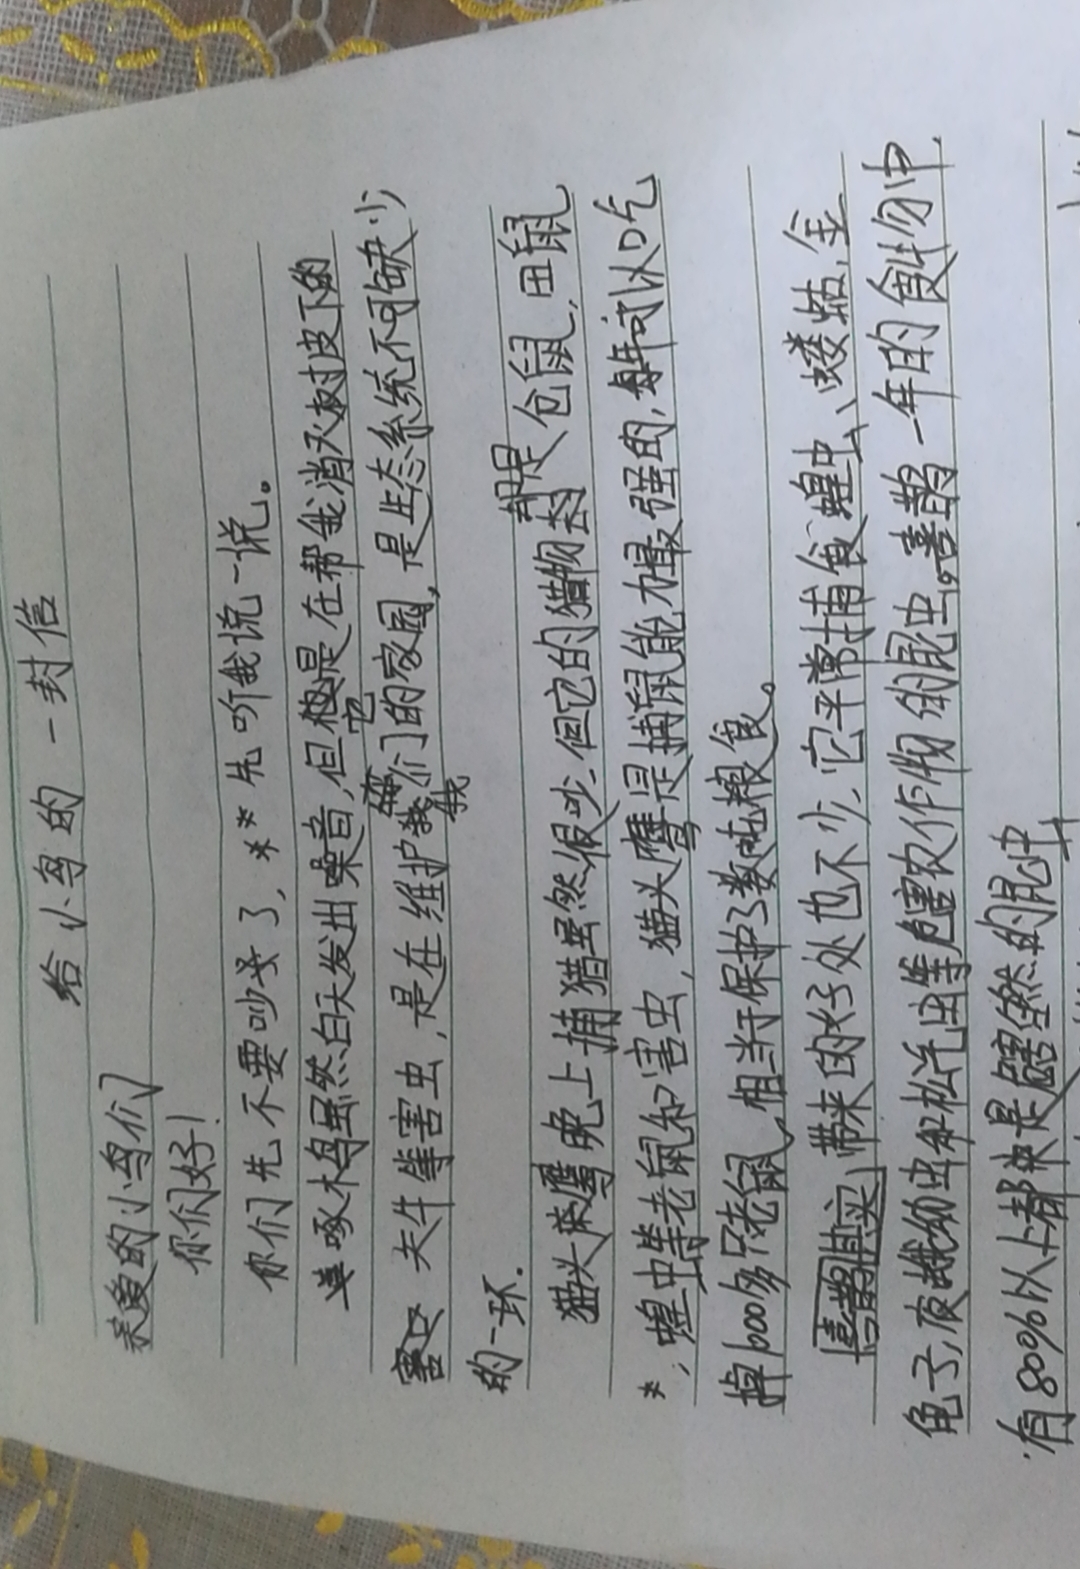 给小鸟的一封信
亲爱的小鸟们
你们好！
你们先不要吵了，**先听我说一说。
啄木鸟虽然白天发出噪音，但它是在帮我消灭树皮下的
天牛等害虫，是在维护我们的家园，是生态系统不可缺少
的一环.
猫头鹰晚上捕猎虽然很吵,但它的猎物都是仓鼠,田鼠
*,蝗虫等老鼠和害虫,猫头鹰是捕鼠能力最强的,每年可以吃
掉1000多只老鼠,相当于保护了数吨粮食。
喜鹊其实带来的好处也不少,它平常捕食蝗虫、蝼蛄,金
龟子,夜蛾幼虫和松毛虫等危害农作物的昆虫。喜鹊一年的食物中
有80%以上都是的昆虫